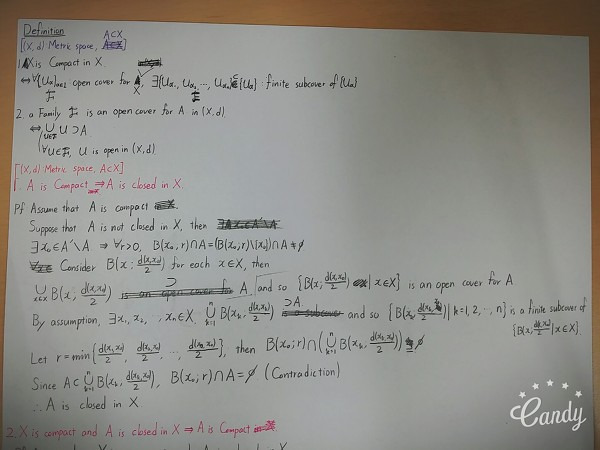 Definition
[(X, d) Metric space, A⊂X]
1. A is Compact in X.
⇔ ∀{Uα}α∈I open cover for A, ∃{Uα₁, Uα₂, ..., Uαₙ}⊂{Uα} : finite subcover of {Uα}
2. a Family F is an open cover for A in (X, d)
⇔ ∪_{U∈F} U ⊃ A
∀U∈F, U is open in (X, d)
[(X, d) Metric space, A⊂X]
1. A is Compact ⇒ A is closed in X.
Pf Assume that A is compact
Suppose that A is not closed in X, then
∃x₀∈A'\A ⇒ ∀r>0, B(x₀, r)∩A = (B(x₀; r)\{x₀})∩A ≠ ∅
Consider B(x; d(x,x₀)/2) for each x∈X, then
∪_{x∈X} B(x; d(x,x₀)/2) ⊃ A and so {B(x; d(x,x₀)/2) | x∈X} is an open cover for A
By assumption, ∃x₁, x₂, ..., xₙ∈X. ∪_{k=1}^{n} B(xₖ, d(xₖ,x₀)/2) ⊃A and so {B(xₖ, d(xₖ,x₀)/2) | k=1, 2, ..., n} is a finite subcover of
{B(x; d(x,x₀)/2) | x∈X}.
Let r = min{d(x₁,x₀)/2, d(x₂,x₀)/2, ..., d(xₙ,x₀)/2}, then B(x₀; r)∩(∪_{k=1}^{n} B(xₖ, d(xₖ,x₀)/2)) = ∅
Since A⊂∪_{k=1}^{n} B(xₖ, d(xₖ,x₀)/2), B(x₀; r)∩A = ∅ (Contradiction)
∴ A is closed in X
2. X is compact and A is closed in X ⇒ A is Compact
Candy